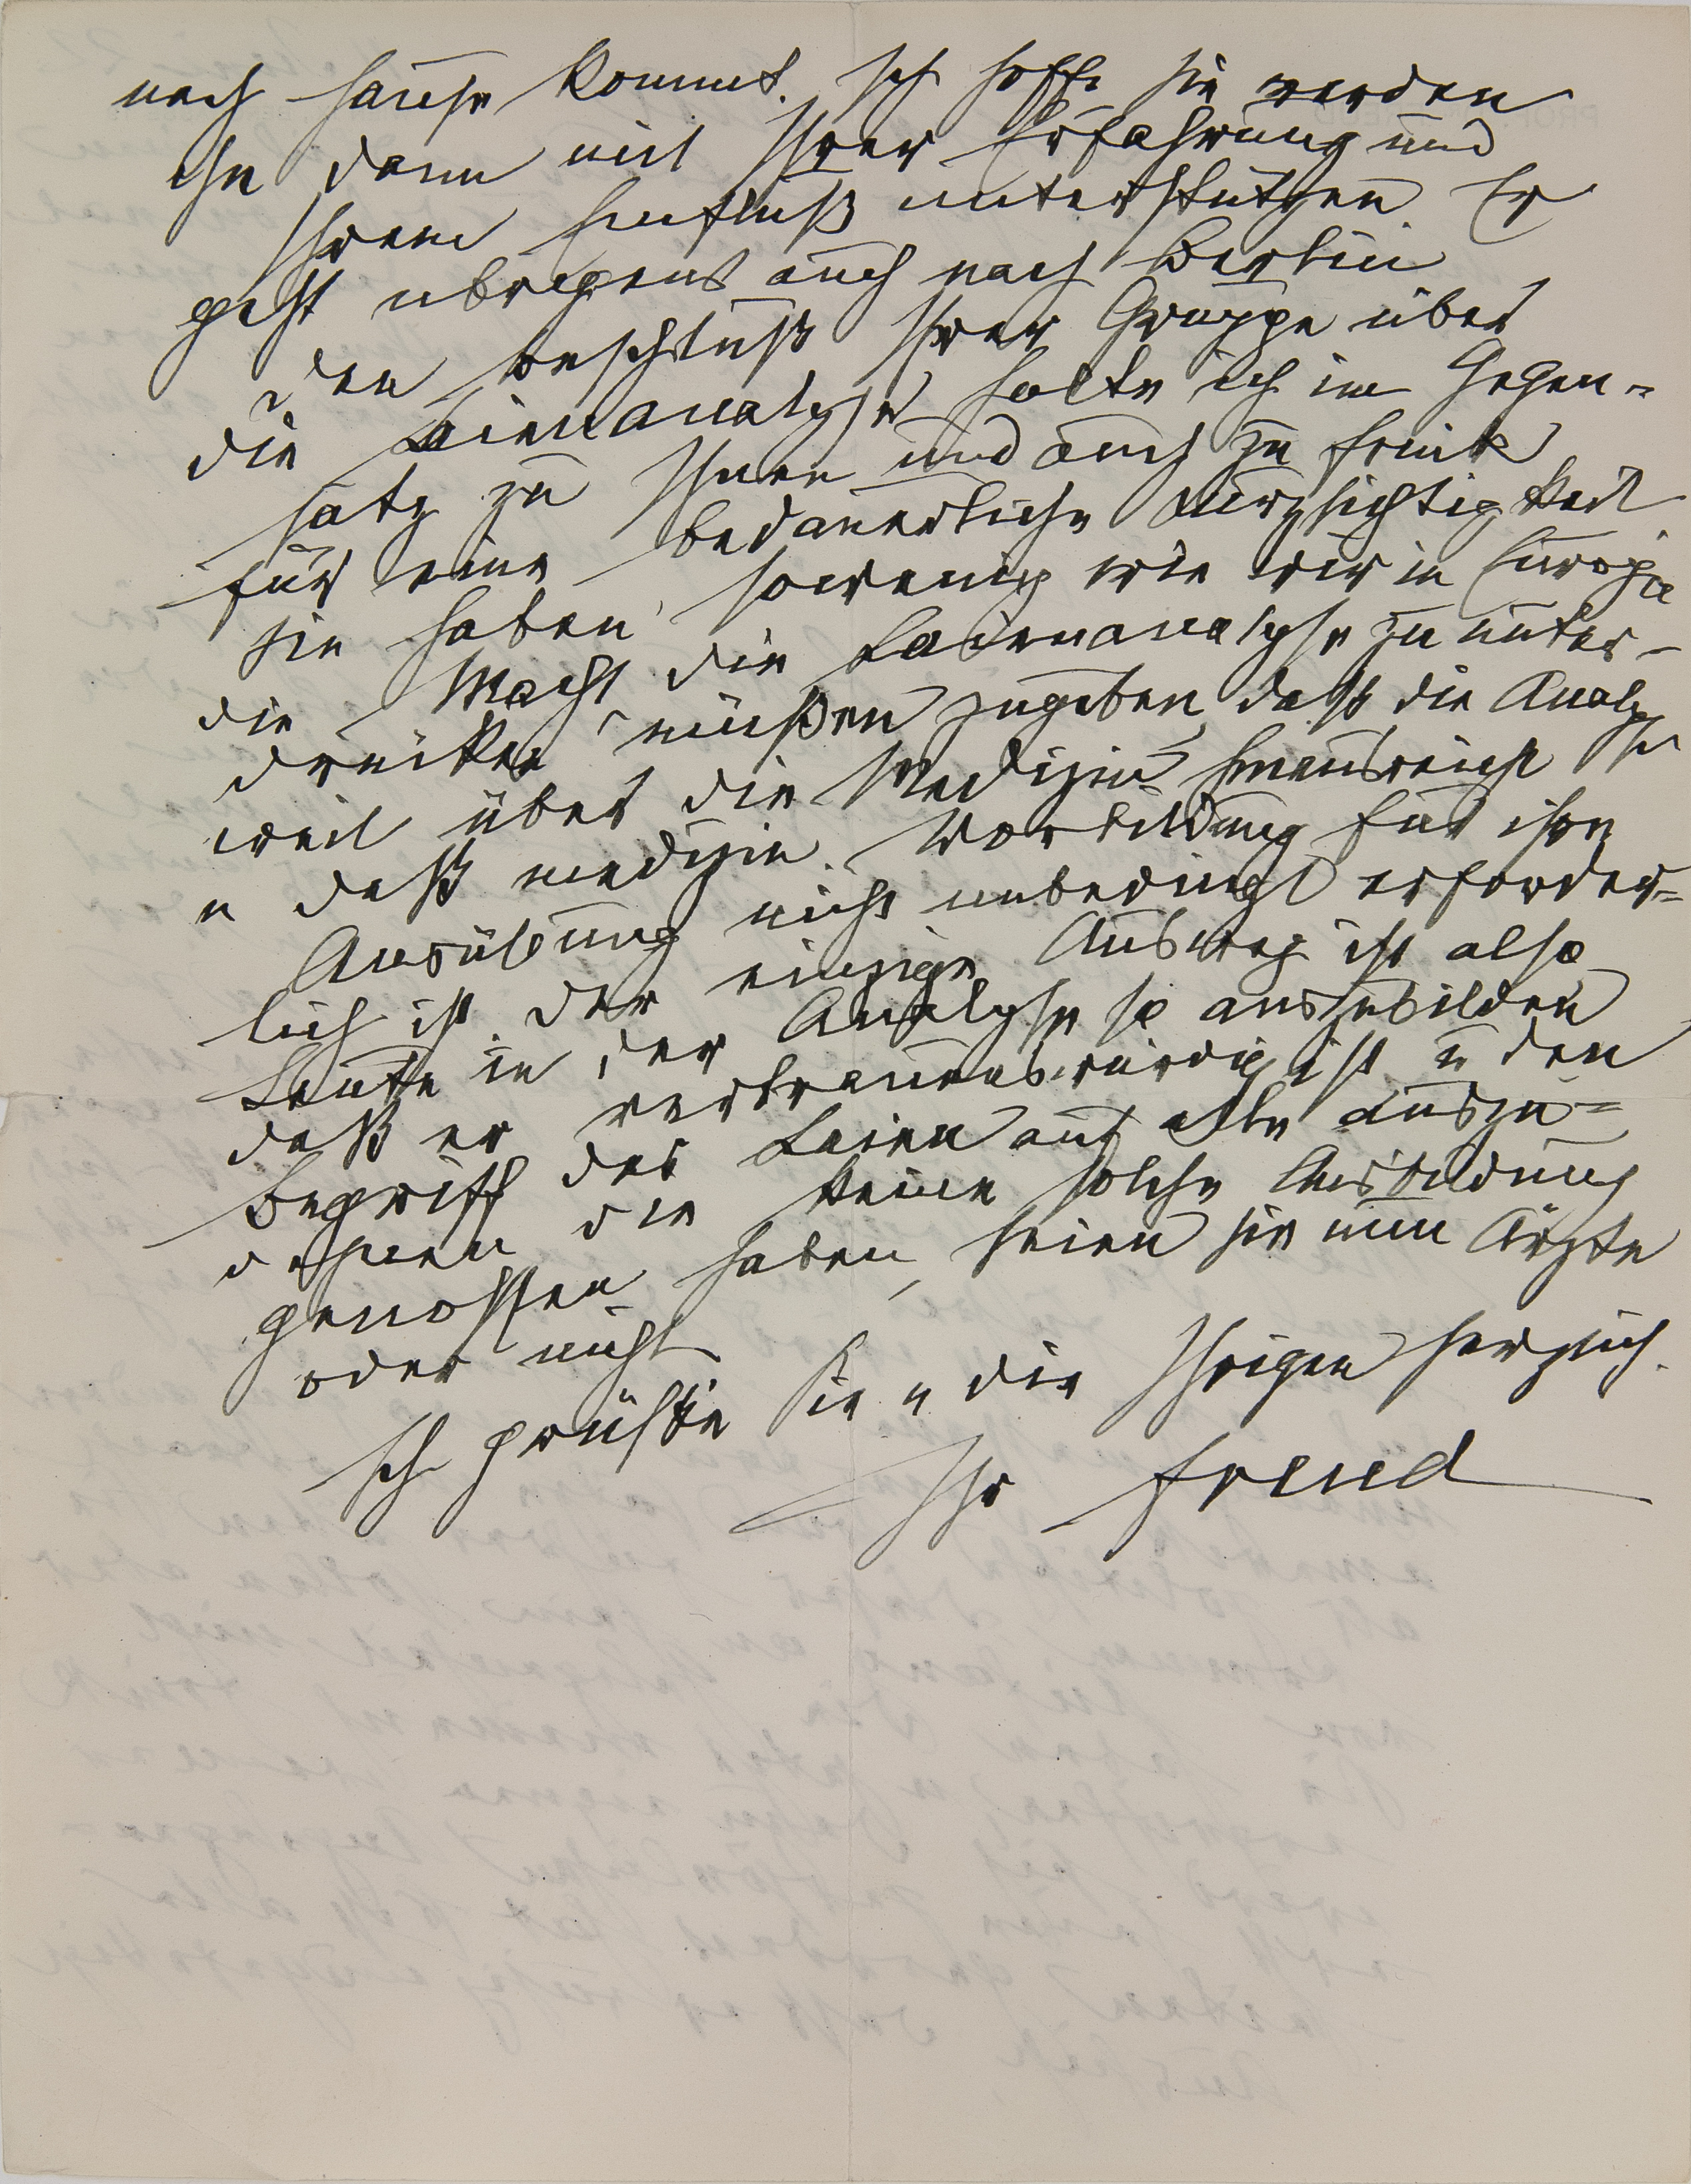 nach Hause kommt. Ich hoffe Sie werden
ihn dann mit Ihrer Erfahrung und
Ihrem Einfluß unterstützen. Er
geht übrigens auch nach Berlin
Den Beschluß Ihrer Gruppe über
die Laienanalyse halte ich im Gegen-
satz zu Ihnen und auch zu Frink
für eine bedauerliche Kurzsichtigkeit.
Sie haben sowenig wie wir in Europa
die Macht die Laienanalyse zu unter-
drücken, müßen zugeben, daß die Analyse
weit über die Medizin hinausreicht
u daß medizin. Vorbildung für ihre
Ausübung nicht unbedingt erforder-
lich ist. Der einzige Ausweg ist also
Leute in der Analyse so auszubilden
daß er vertrauenswürdig ist u den
Begriff des Laien auf alle auszu-
dehnen die keine solche Ausbildung
genossen haben, seien sie nun Ärzte
oder nicht.
Ich grüße Sie u die Ihrigen herzlich.
Ihr Freud